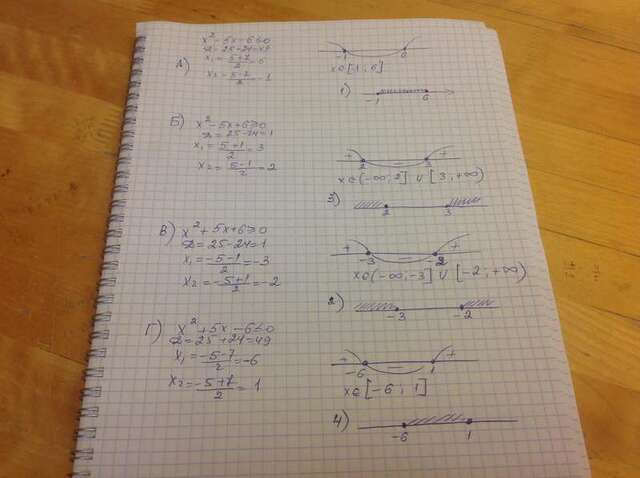 А)
x² - 5x - 6 ≤ 0
D = 25 + 24 = 49
x₁ = (5+7)/2 = 6
x₂ = (5-7)/2 = -1
-1 6
x ∈ [1; 6]
1) -1 6
Б)
x² - 5x + 6 ≥ 0
D = 25 - 24 = 1
x₁ = (5+1)/2 = 3
x₂ = (5-1)/2 = 2
+ 2 - 3 +
x ∈ (-∞; 2] ∪ [3; +∞)
3) 2 3
В)
x² + 5x + 6 ≥ 0
D = 25 - 24 = 1
x₁ = (-5-1)/2 = -3
x₂ = (-5+1)/2 = -2
+ -3 - -2 +
x ∈ (-∞; -3] ∪ [-2; +∞)
2) -3 -2
Г)
x² + 5x - 6 ≤ 0
D = 25 + 24 = 49
x₁ = (-5-7)/2 = -6
x₂ = (-5+7)/2 = 1
+ -6 - 1 +
x ∈ [-6; 1]
4) -6 1